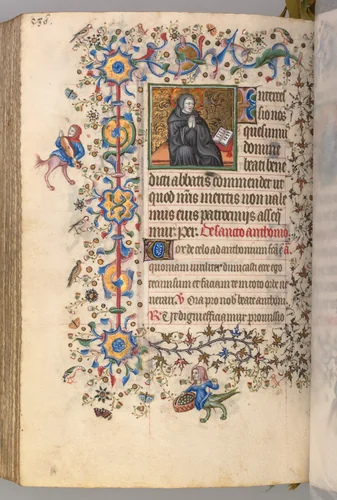 Interces
sio nos
quesumus
domine
beati bene
dicti abbatis commendet ut
quod nris meritis non vale
mus eius patrocinijs asseq
mur. per. De sancto anthonio.
Vox de celo ad anthonium fca e a
quoniam viriliter dimicasti ecce ego
tecum sum et faciam te in toto orbe
nerari. V Ora pro nob beate anthoni
R Et digni efficiamur promissio